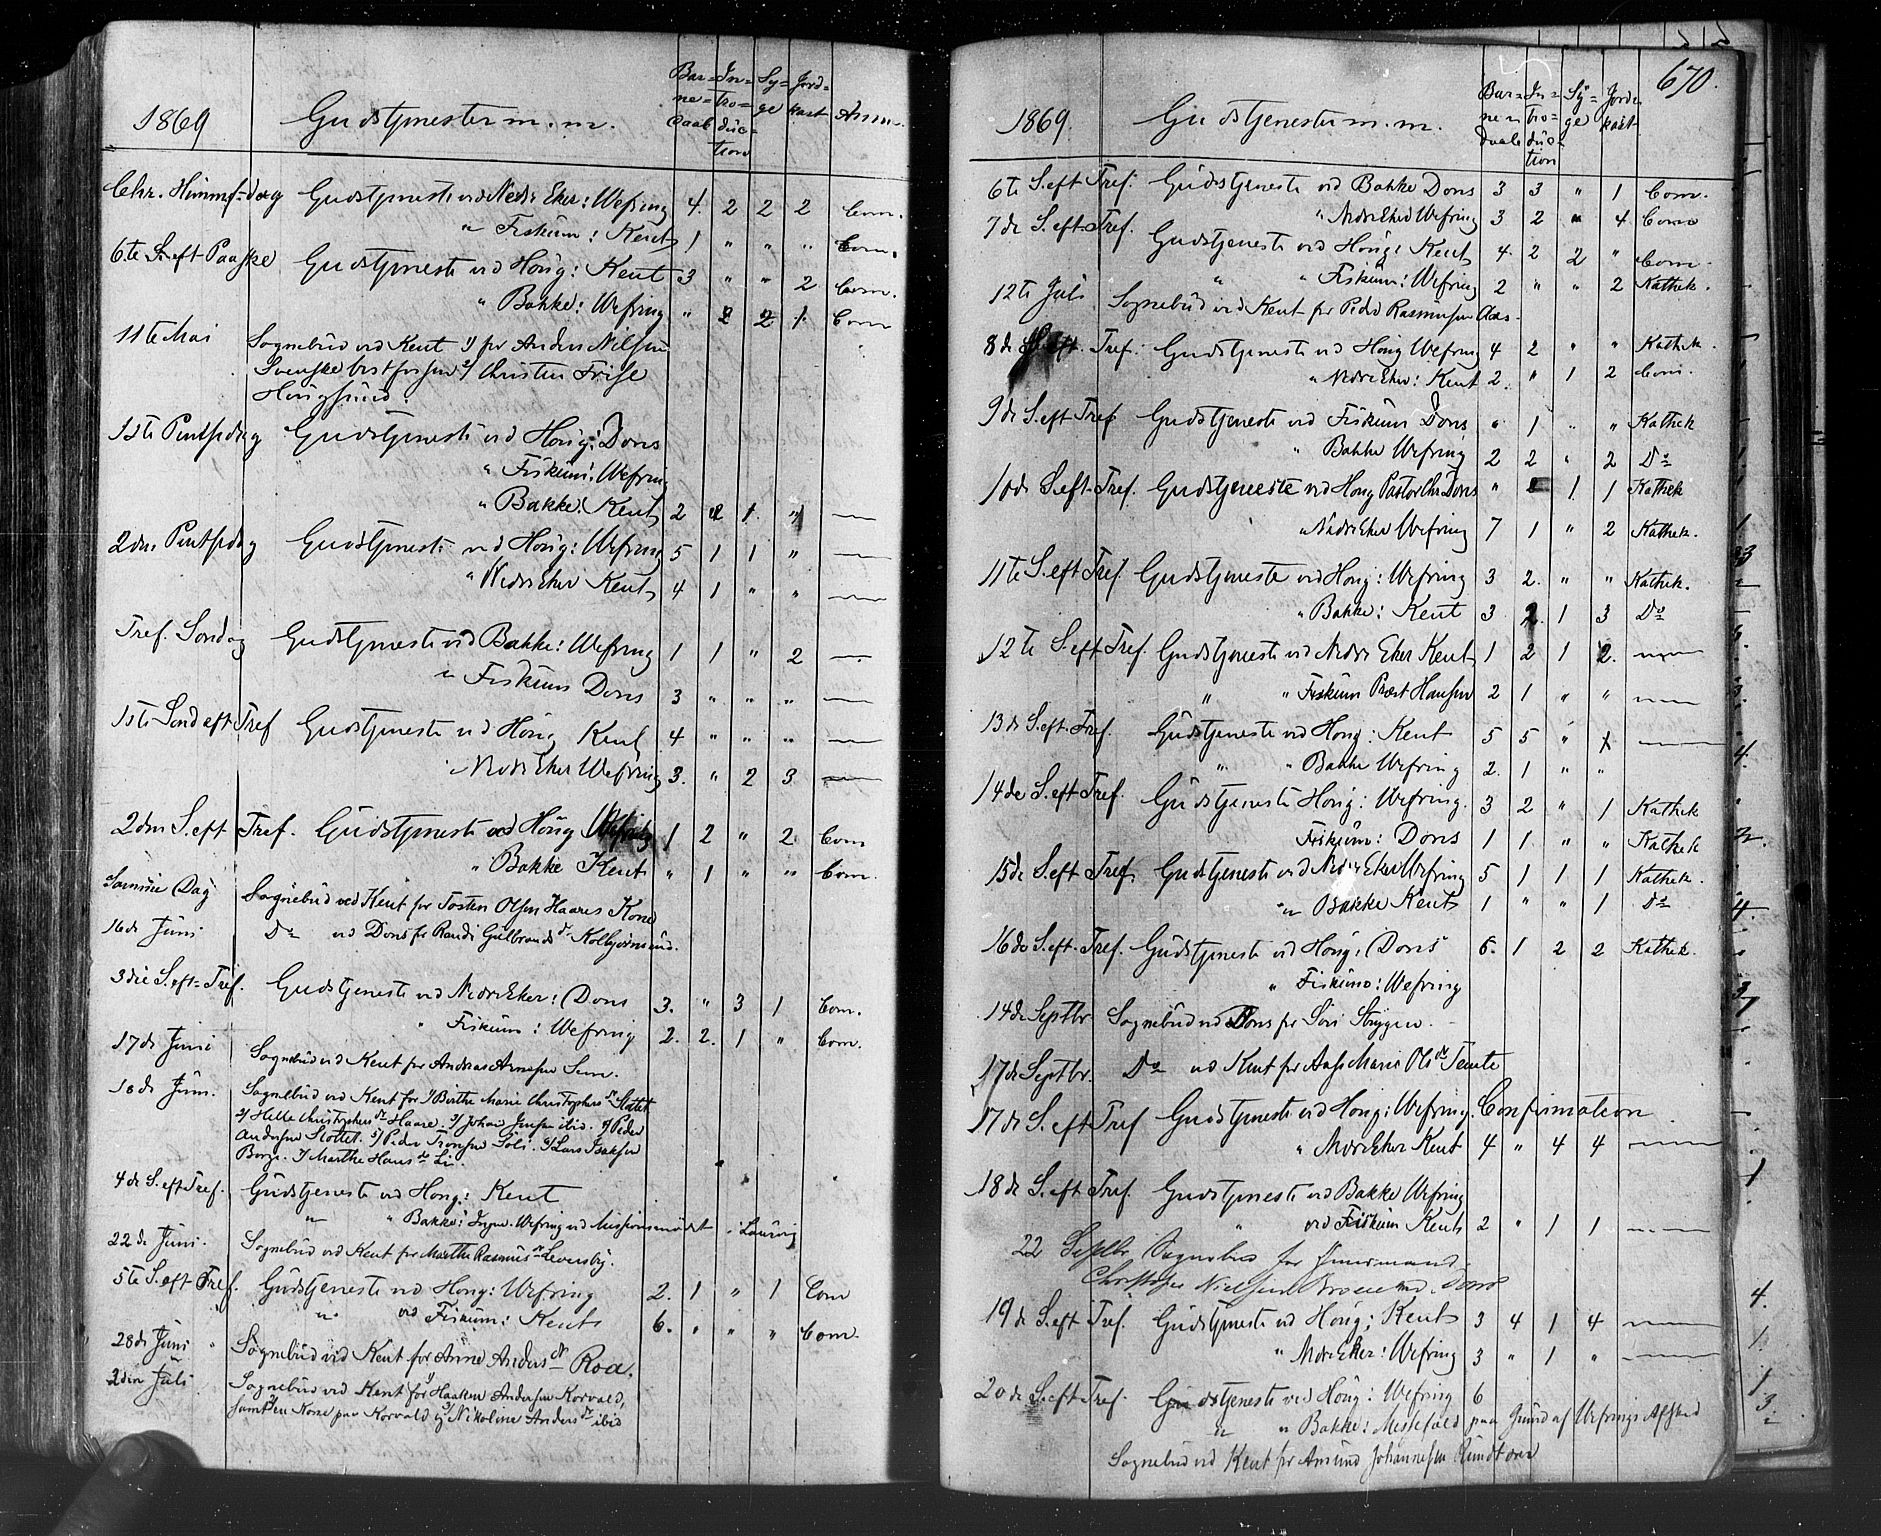 1869 Gudstjenester m. m. Bar= In= Sy= Jord=
ne= tro= ge kast Anm.
daab duc=
tion
Chr. Himmf=dag Gudstjeneste ved Nedre Eker: Wefring 4. 2 2 2 Com.
" Fiskum: Kent 1 " " " Com.
6te S. eft Paaske Gudstjeneste ved Houg: Kent 3 " " 2 Com.
" Bakke: Wefring " 2 2 1. Com
11te Mai Sognebud ved Kent 1/ for Anders Nilsen
Svenske 2/ Christen Frise
Hougsund.
1ste Pintsedag Gudstjeneste ved Houg: Dons
" Fiskum: Wefring
" Bakke: Kent 2 2 1. "
2den Pintsedag Gudstjeneste ved Houg: Wefring 5 1 1 "
" Nedre Eker Kent 4 1 " "
Tref. Sondag Gudstjeneste ved Bakke: Wefring 1 1 " 2
" Fiskum Dons 3 " " "
1ste Sond eft Tref Gudstjeneste ved Houg Kent 4 " " "
" Nedre Eker Wefring 3. " 2 3
2den S. eft Tref. Gudstjeneste ved Houg Wefring 1 2 " 2 Com
" Bakke Kent " 1 " " Com.
Samme Dag Sognebud ved Kent for Tosten Olsen Haares Kone
16de Juni Do ved Dons for Randi Gulbrandsdr Kolbjørnsrud.
3die S. eft Tref. Gudstjeneste ved Nedre Eker: Dons 3. " 3 1 Com.
" Fiskum: Wefring 2. 2. 1 " Com.
17de Juni Sognebud ved Kent for Andreas Arnesen Sem.
18de Juni Sognebud ved Kent for 1/ Birthe Marie Christophersdr Slottet
2/ Helle Christophersdr Haare. 3/ Johan Jensen ibid. 4/ Peder
Andersen Slottet. 5/ Peder Tronsen Soli. 6/ Lars Isaksen
Borge. 7/ Marthe Hansdr Li.
4de S. eft Tref. Gudstjeneste ved Houg: Kent
" " Bakke: Ingen. Wefring ved Missionsmødet i Laurvig
22de Juni. Sognebud ved Kent for Marthe Rasmusdr Leversby.
5te S. eft Tref. Gudstjeneste ved Houg: Wefring 2. 1 " 1 Com
" ved Fiskum: Kent 6. " " " Com.
28de Juni Sognebud ved Kent for Anne Andersdr Roa.
2den Juli Sognebud ved Kent for 1/ Haaken Andersen Korvald,
samt 2/ en Kone paa Korvald og 3/ Nikoline Andersdr ibid
670.
1869. Gudstjenester m. m. Bar= In= Sy= Jord=
ne= tro= ge kast
daab duc=
tion
6te S. eft Tref. Gudstjeneste ved Bakke Dons 3 3 " 1 Com.
" Nedre Eker Wefring 3 2 " 4 Com
7de S. eft Tref. Gudstjeneste ved Houg: Kent 4. 2 2 " Com.
" " Fiskum: Wefring 2 " " 2 Kathek.
12te Juli Sognebud ved Kent for Peder Rasmusen Aas.
8de S. eft. Tref. Gudstjeneste ved Houg Wefring 4 2 " " Kathek.
" Nedre Eker: Kent 2. " 1 2 Com.
9de S. eft Tref Gudstjeneste ved Fiskum Dons " 1 " " Kathek
" Bakke Wefring 2 2 " 2 Do
10de S. eft Tref. Gudstjeneste ved Houg Pastor Chr. Dons " 1 1 Kathek
" Nedre Eker Wefring 7 1 " 2 Kathek.
11te S. eft Tref. Gudstjeneste ved Houg: Wefring 3 2. " " Kathek.
" Bakke: Kent 3 2. 1 3 Do
12te S. eft Tref. Gudstjeneste ved Nedre Eker Kent 1 2 1 2.
" " Fiskum Præst Hansen 2 1 " "
13de S. eft Tref. Gudstjeneste ved Houg: Kent 5 5 " 1
" " Bakke Wefring 2. 1 " "
14de S. eft Tref. Gudstjeneste Houg: Wefring. 3 2 " 1 Kathek
Fiskum: Dons 1 1. " " Kathek
15de S. eft Tref. Gudstjeneste ved Nedre Eker Wefring 5 1 1 1 Kathek.
" Bakke Kent 1 " " 1 Do
16de S. eft. Tref. Gudstjeneste ved Houg: Dons 6. 1 2 2 Kathek.
" Fiskum: Wefring
14de Septbr. Sognebud ved Dons for Siri Strygen.
17de Septbr. Do ved Kent for Aase Marie Olsdr Temte
17de S. eft Tref Gudstjeneste ved Houg: Wefring. Confirmation
" Nedre Eker Kent 4 " 4 4
18de S. eft Tref. Gudstjeneste ved Bakke Wefring
" ved Fiskum Kent 2 " 1 1
22 Septbr Sognebud for
Christofer Nielsen ved Dons
19de S. eft Tref. Gudstjeneste ved Houg: Kent 3 4 1 4
" Nedre Eker: Wefring 3 " 1 "
20de S. eft Tref. Gudstjeneste ved Houg: Wefring 6
" " Bakke: Messefald paa Grund af Wefrings Afsked
Sognebud ved Kent for Amund Johannesen Rundtom